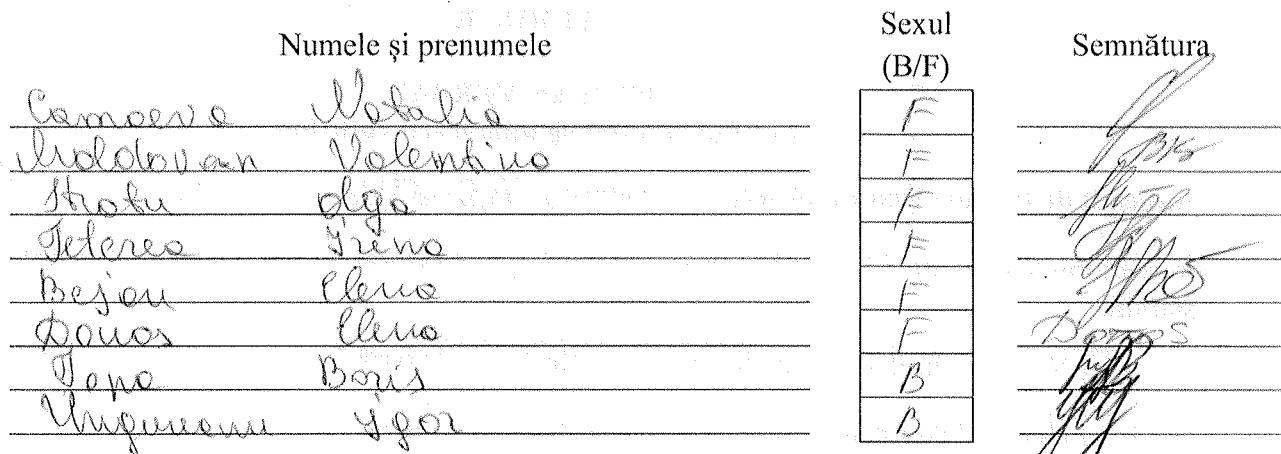 Numele și prenumele Sexul (B/F) Semnătura
Camaeva Natalia F
Moldovan Valentina F
Stratu Olga F
Teterea Irena F
Bejan Elena F
Donos Elena F Donos
Țapa Boris B
Ungureanu Igor B